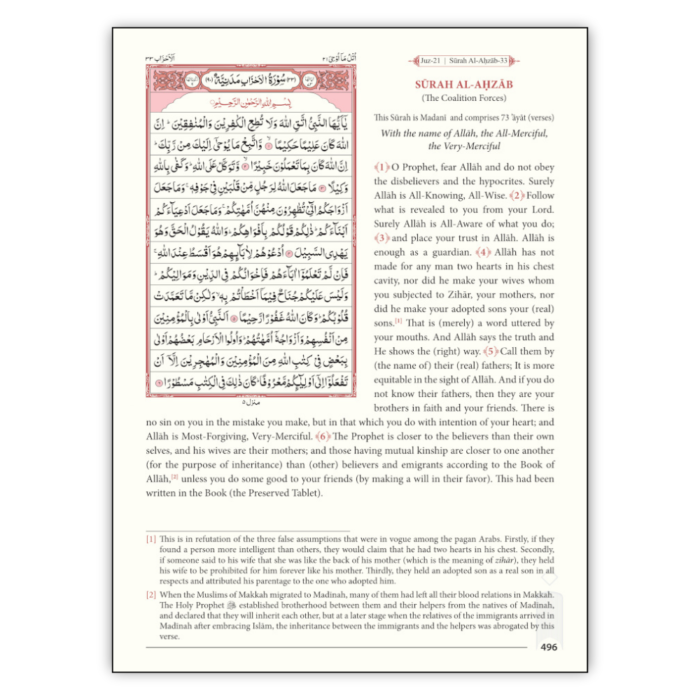 اَلْاَحْزَاب ٣٣
اُتْلُ مَآ اُوْحِیَ ٢١
Juz-21 | Sūrah Al-Aḥzāb-33
سُوْرَةُ الْاَحْزَابِ مَدَنِيَّةٌ
بِسْمِ اللهِ الرَّحْمٰنِ الرَّحِيْمِ
يٰٓاَيُّهَا النَّبِيُّ اتَّقِ اللهَ وَلَا تُطِعِ الْكٰفِرِيْنَ وَالْمُنٰفِقِيْنَ ؕ اِنَّ
اللهَ كَانَ عَلِيْمًا حَكِيْمًا ۙ وَّاتَّبِعْ مَا يُوْحٰٓى اِلَيْكَ مِنْ رَّبِّكَ ؕ
اِنَّ اللهَ كَانَ بِمَا تَعْمَلُوْنَ خَبِيْرًا ۙ وَّتَوَكَّلْ عَلَى اللهِ ؕ وَكَفٰى بِاللهِ
وَكِيْلًا مَا جَعَلَ اللهُ لِرَجُلٍ مِّنْ قَلْبَيْنِ فِيْ جَوْفِهٖ ۚ وَمَا جَعَلَ
اَزْوَاجَكُمُ الّٰٓـِٔيْ تُظٰهِرُوْنَ مِنْهُنَّ اُمَّهٰتِكُمْ ۚ وَمَا جَعَلَ اَدْعِيَآءَكُمْ
اَبْنَآءَكُمْ ؕ ذٰلِكُمْ قَوْلُكُمْ بِاَفْوَاهِكُمْ ؕ وَاللهُ يَقُوْلُ الْحَقَّ وَهُوَ
يَهْدِى السَّبِيْلَ اُدْعُوْهُمْ لِاٰبَآئِهِمْ هُوَ اَقْسَطُ عِنْدَ اللهِ ۚ
فَاِنْ لَّمْ تَعْلَمُوْٓا اٰبَآءَهُمْ فَاِخْوَانُكُمْ فِى الدِّيْنِ وَمَوَالِيْكُمْ ؕ
وَلَيْسَ عَلَيْكُمْ جُنَاحٌ فِيْمَآ اَخْطَاْتُمْ بِهٖ ۙ وَلٰكِنْ مَّا تَعَمَّدَتْ
قُلُوْبُكُمْ ؕ وَكَانَ اللهُ غَفُوْرًا رَّحِيْمًا اَلنَّبِيُّ اَوْلٰى بِالْمُؤْمِنِيْنَ
مِنْ اَنْفُسِهِمْ وَاَزْوَاجُهٗٓ اُمَّهٰتُهُمْ ؕ وَاُولُوا الْاَرْحَامِ بَعْضُهُمْ اَوْلٰى
بِبَعْضٍ فِيْ كِتٰبِ اللهِ مِنَ الْمُؤْمِنِيْنَ وَالْمُهٰجِرِيْنَ اِلَّآ اَنْ
تَفْعَلُوْٓا اِلٰٓى اَوْلِيٰٓئِكُمْ مَّعْرُوْفًا ؕ كَانَ ذٰلِكَ فِى الْكِتٰبِ مَسْطُوْرًا
منزل ٥
SŪRAH AL-AḤZĀB
(The Coalition Forces)
This Sūrah is Madanī and comprises 73 'āyāt (verses)
With the name of Allāh, the All-Merciful,
the Very-Merciful
(1) O Prophet, fear Allāh and do not obey
the disbelievers and the hypocrites. Surely
Allāh is All-Knowing, All-Wise. (2) Follow
what is revealed to you from your Lord.
Surely Allāh is All-Aware of what you do;
(3) and place your trust in Allāh. Allāh is
enough as a guardian. (4) Allāh has not
made for any man two hearts in his chest
cavity, nor did he make your wives whom
you subjected to Zihār, your mothers, nor
did he make your adopted sons your (real)
sons.[1] That is (merely) a word uttered by
your mouths. And Allāh says the truth and
He shows the (right) way. (5) Call them by
(the name of) their (real) fathers; It is more
equitable in the sight of Allāh. And if you do
not know their fathers, then they are your
brothers in faith and your friends. There is
no sin on you in the mistake you make, but in that which you do with intention of your heart; and
Allāh is Most-Forgiving, Very-Merciful. (6) The Prophet is closer to the believers than their own
selves, and his wives are their mothers; and those having mutual kinship are closer to one another
(for the purpose of inheritance) than (other) believers and emigrants according to the Book of
Allāh,[2] unless you do some good to your friends (by making a will in their favor). This had been
written in the Book (the Preserved Tablet).
[1] This is in refutation of the three false assumptions that were in vogue among the pagan Arabs. Firstly, if they
found a person more intelligent than others, they would claim that he had two hearts in his chest. Secondly,
if someone said to his wife that she was like the back of his mother (which is the meaning of zihār), they held
his wife to be prohibited for him forever like his mother. Thirdly, they held an adopted son as a real son in all
respects and attributed his parentage to the one who adopted him.
[2] When the Muslims of Makkah migrated to Madinah, many of them had left all their blood relations in Makkah.
The Holy Prophet ﷺ established brotherhood between them and their helpers from the natives of Madinah,
and declared that they will inherit each other, but at a later stage when the relatives of the immigrants arrived in
Madinah after embracing Islām, the inheritance between the immigrants and the helpers was abrogated by this
verse.
496